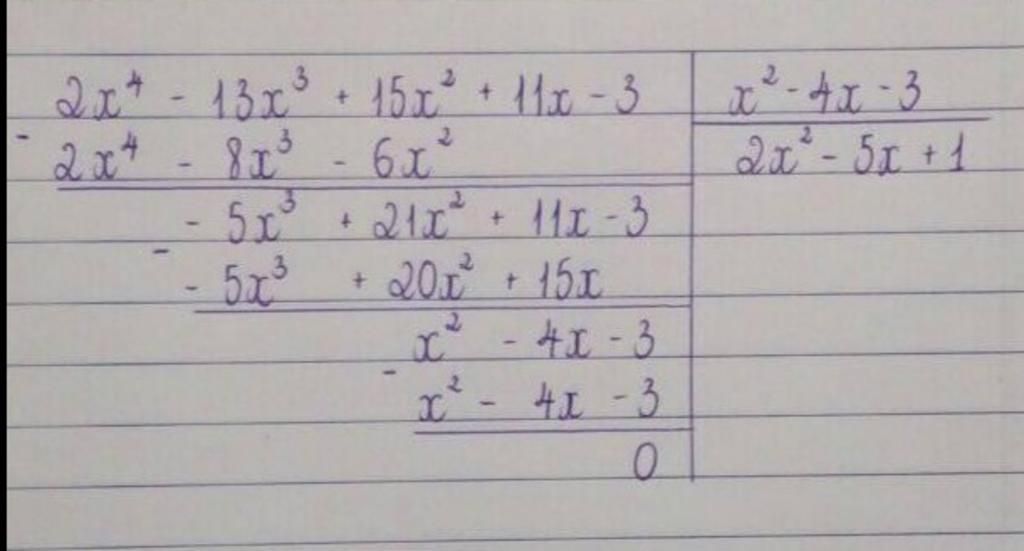 2x⁴ - 13x³ + 15x² + 11x - 3 | x² - 4x - 3
- 2x⁴ - 8x³ - 6x² | 2x² - 5x + 1
- 5x³ + 21x² + 11x - 3
- - 5x³ + 20x² + 15x
x² - 4x - 3
- x² - 4x - 3
0